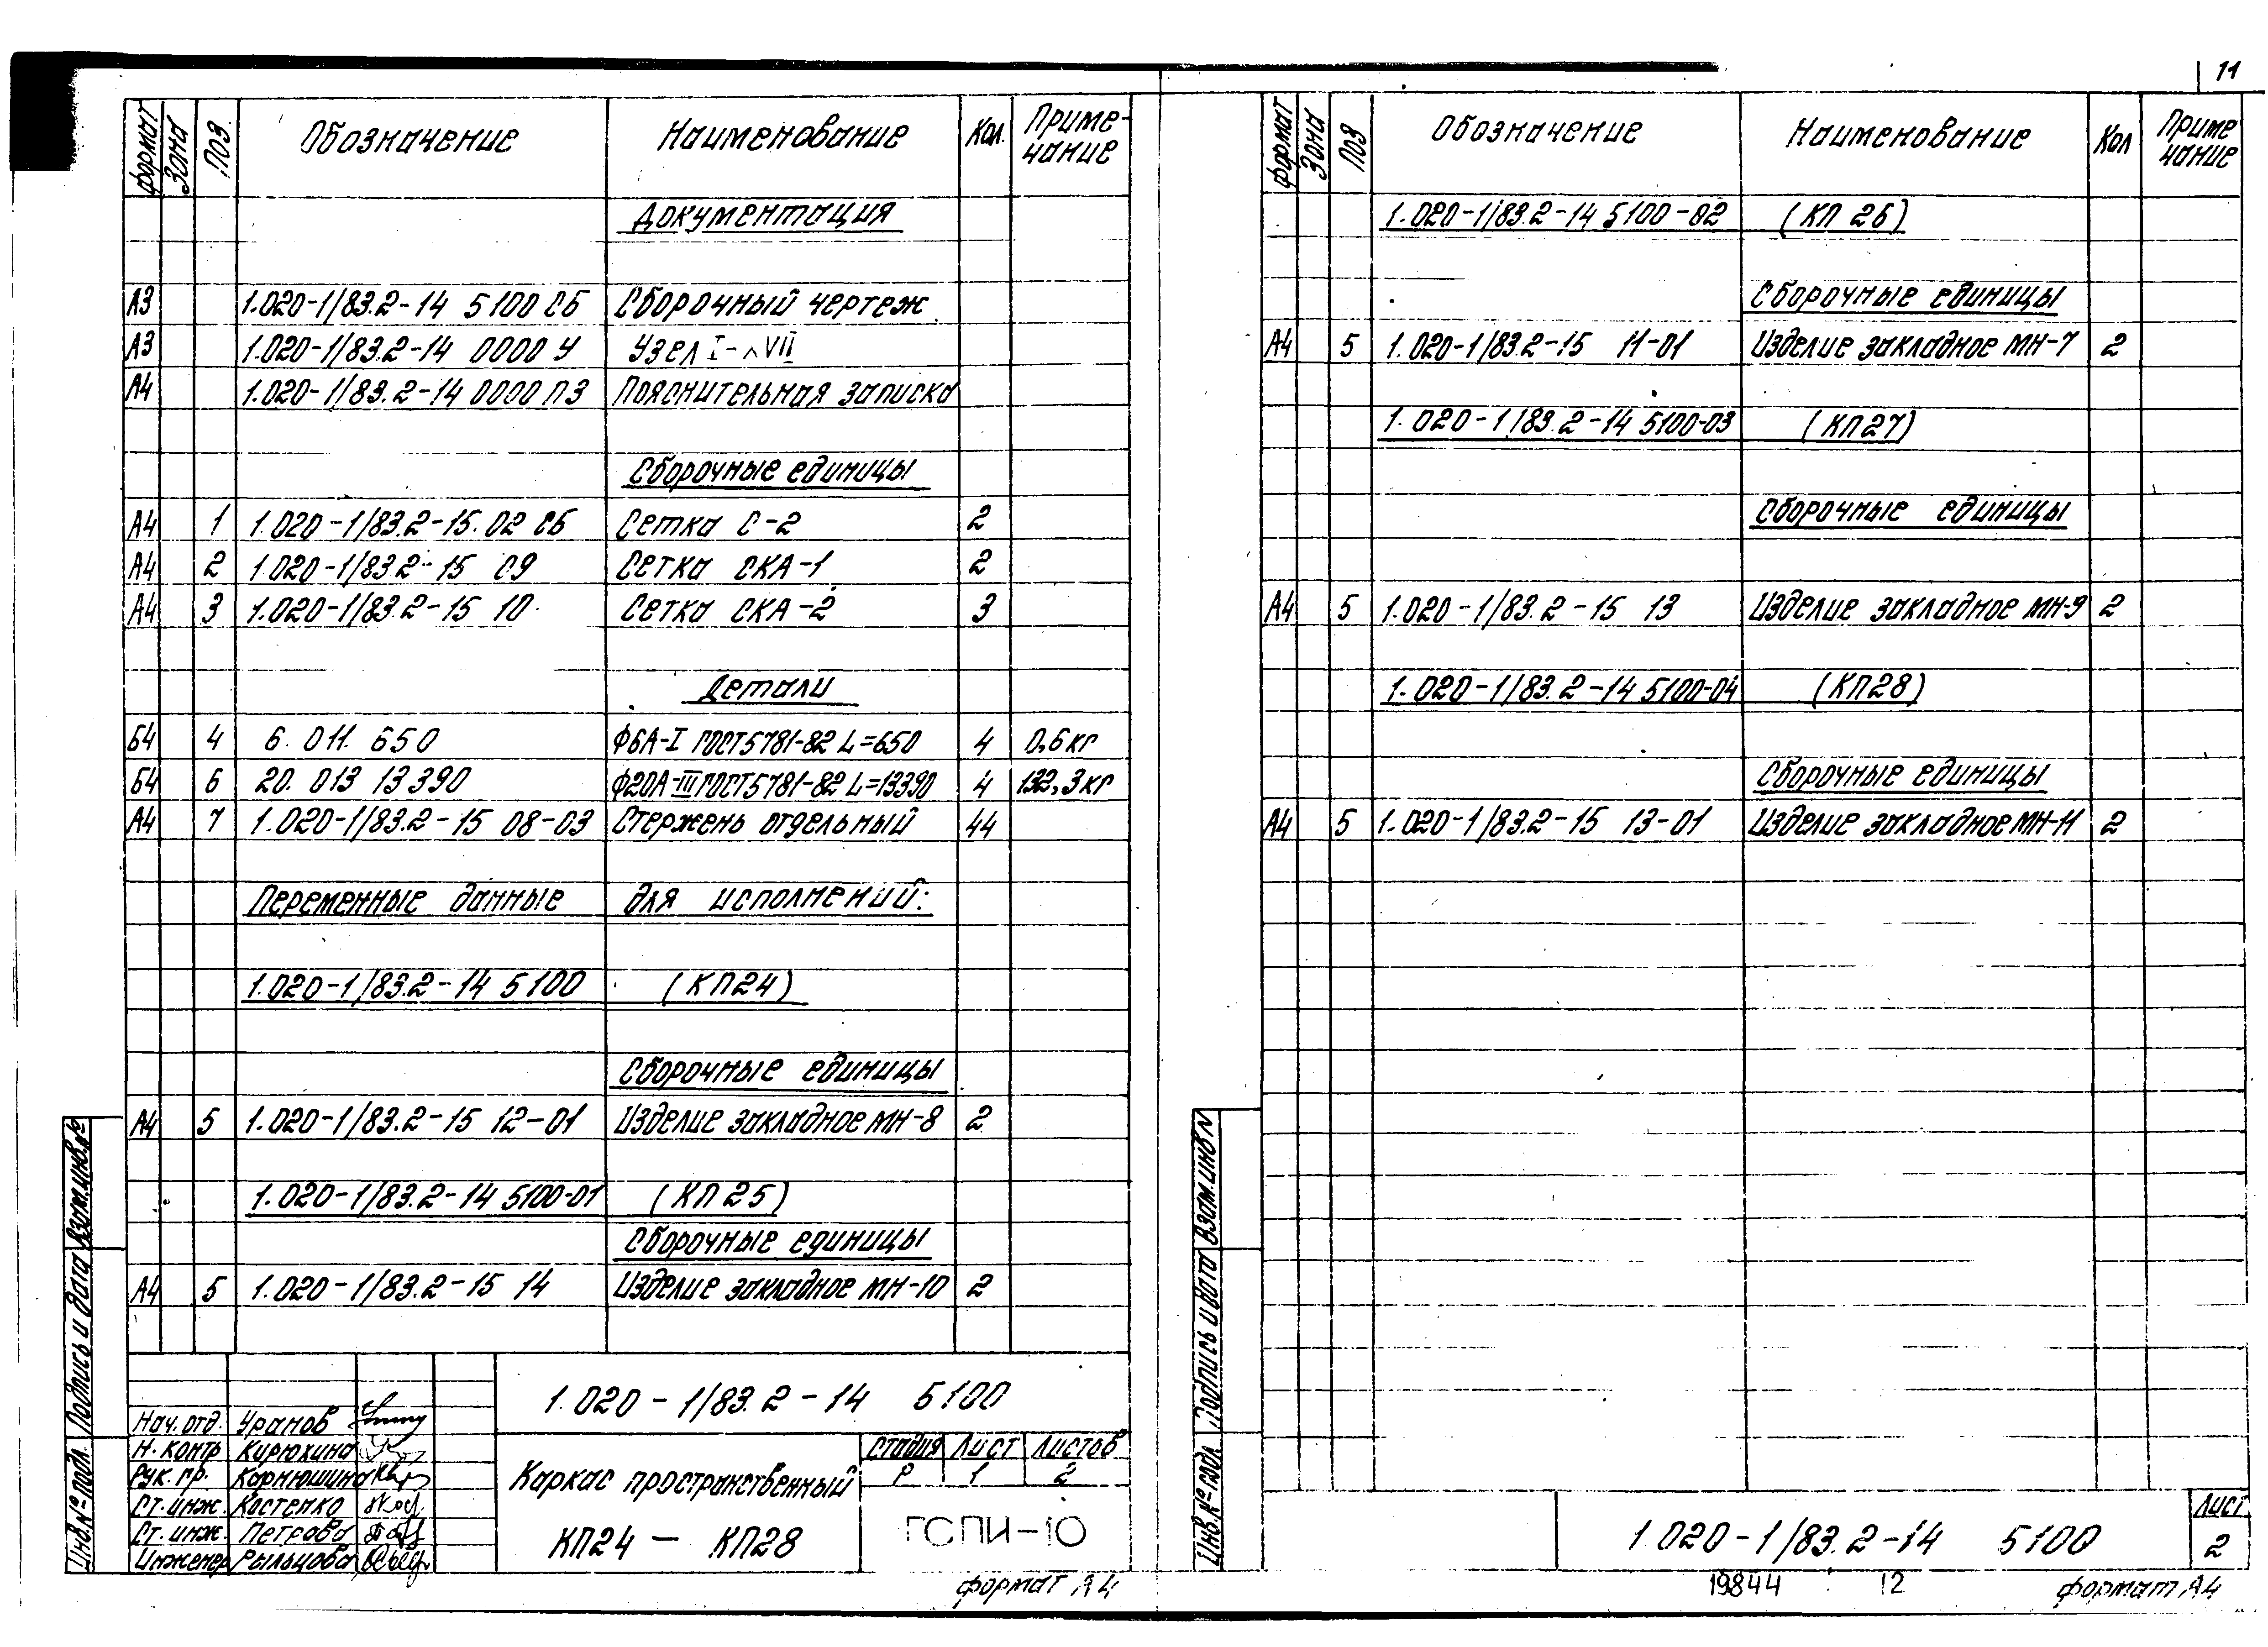 11
Формат Зона Поз. Обозначение Наименование Кол. Приме-
чание
Документация
А3 1.020-1/83.2-14 5100 СБ Сборочный чертеж
А3 1.020-1/83.2-14 0000 У Узел I-XVII
А4 1.020-1/83.2-14 0000 ПЗ Пояснительная записка
Сборочные единицы
А4 1 1.020-1/83.2-15. 02 СБ Сетка С-2 2
А4 2 1.020-1/83.2-15 09 Сетка СКА-1 2
А4 3 1.020-1/83.2-15 10 Сетка СКА-2 3
Детали
Б4 4 6. 011. 650 Ф6А-I ГОСТ5781-82 L=650 4 0,6кг
Б4 6 20. 013 13390 Ф20А-III ГОСТ5781-82 L=13390 4 132,3кг
А4 7 1.020-1/83.2-15 08-03 Стержень отдельный 44
Переменные данные для исполнений:
1.020-1/83.2-14 5100 (КП24)
Сборочные единицы
А4 5 1.020-1/83.2-15 12-01 Изделие закладное МН-8 2
1.020-1/83.2-14 5100-01 (КП25)
Сборочные единицы
А4 5 1.020-1/83.2-15 14 Изделие закладное МН-10 2
Взам.инв.№
Подпись и дата
Инв.№ подл.
1.020-1/83.2-14 5100
Нач.отд. Уранов
Н. контр Кирюхина
Рук. гр. Карнюшина
Ст.инж. Костенко
Ст.инж. Петрова
Инженер Рыльцова
Каркас пространственный
КП24 — КП28
Стадия Лист Листов
Р 1 2
ГСПИ-10
формат А4
Формат Зона Поз Обозначение Наименование Кол Приме
чание
1.020-1/83.2-14 5100-02 (КП 26)
Сборочные единицы
А4 5 1.020-1/83.2-15 11-01 Изделие закладное МН-7 2
1.020-1/83.2-14 5100-03 (КП27)
Сборочные единицы
А4 5 1.020-1/83.2-15 13 Изделие закладное МН-9 2
1.020-1/83.2-14 5100-04 (КП28)
Сборочные единицы
А4 5 1.020-1/83.2-15 13-01 Изделие закладное МН-11 2
Взам.инв N
Подпись и дата
Инв.№ подл.
1.020-1/83.2-14 5100
Лист
2
19844 12
формат А4